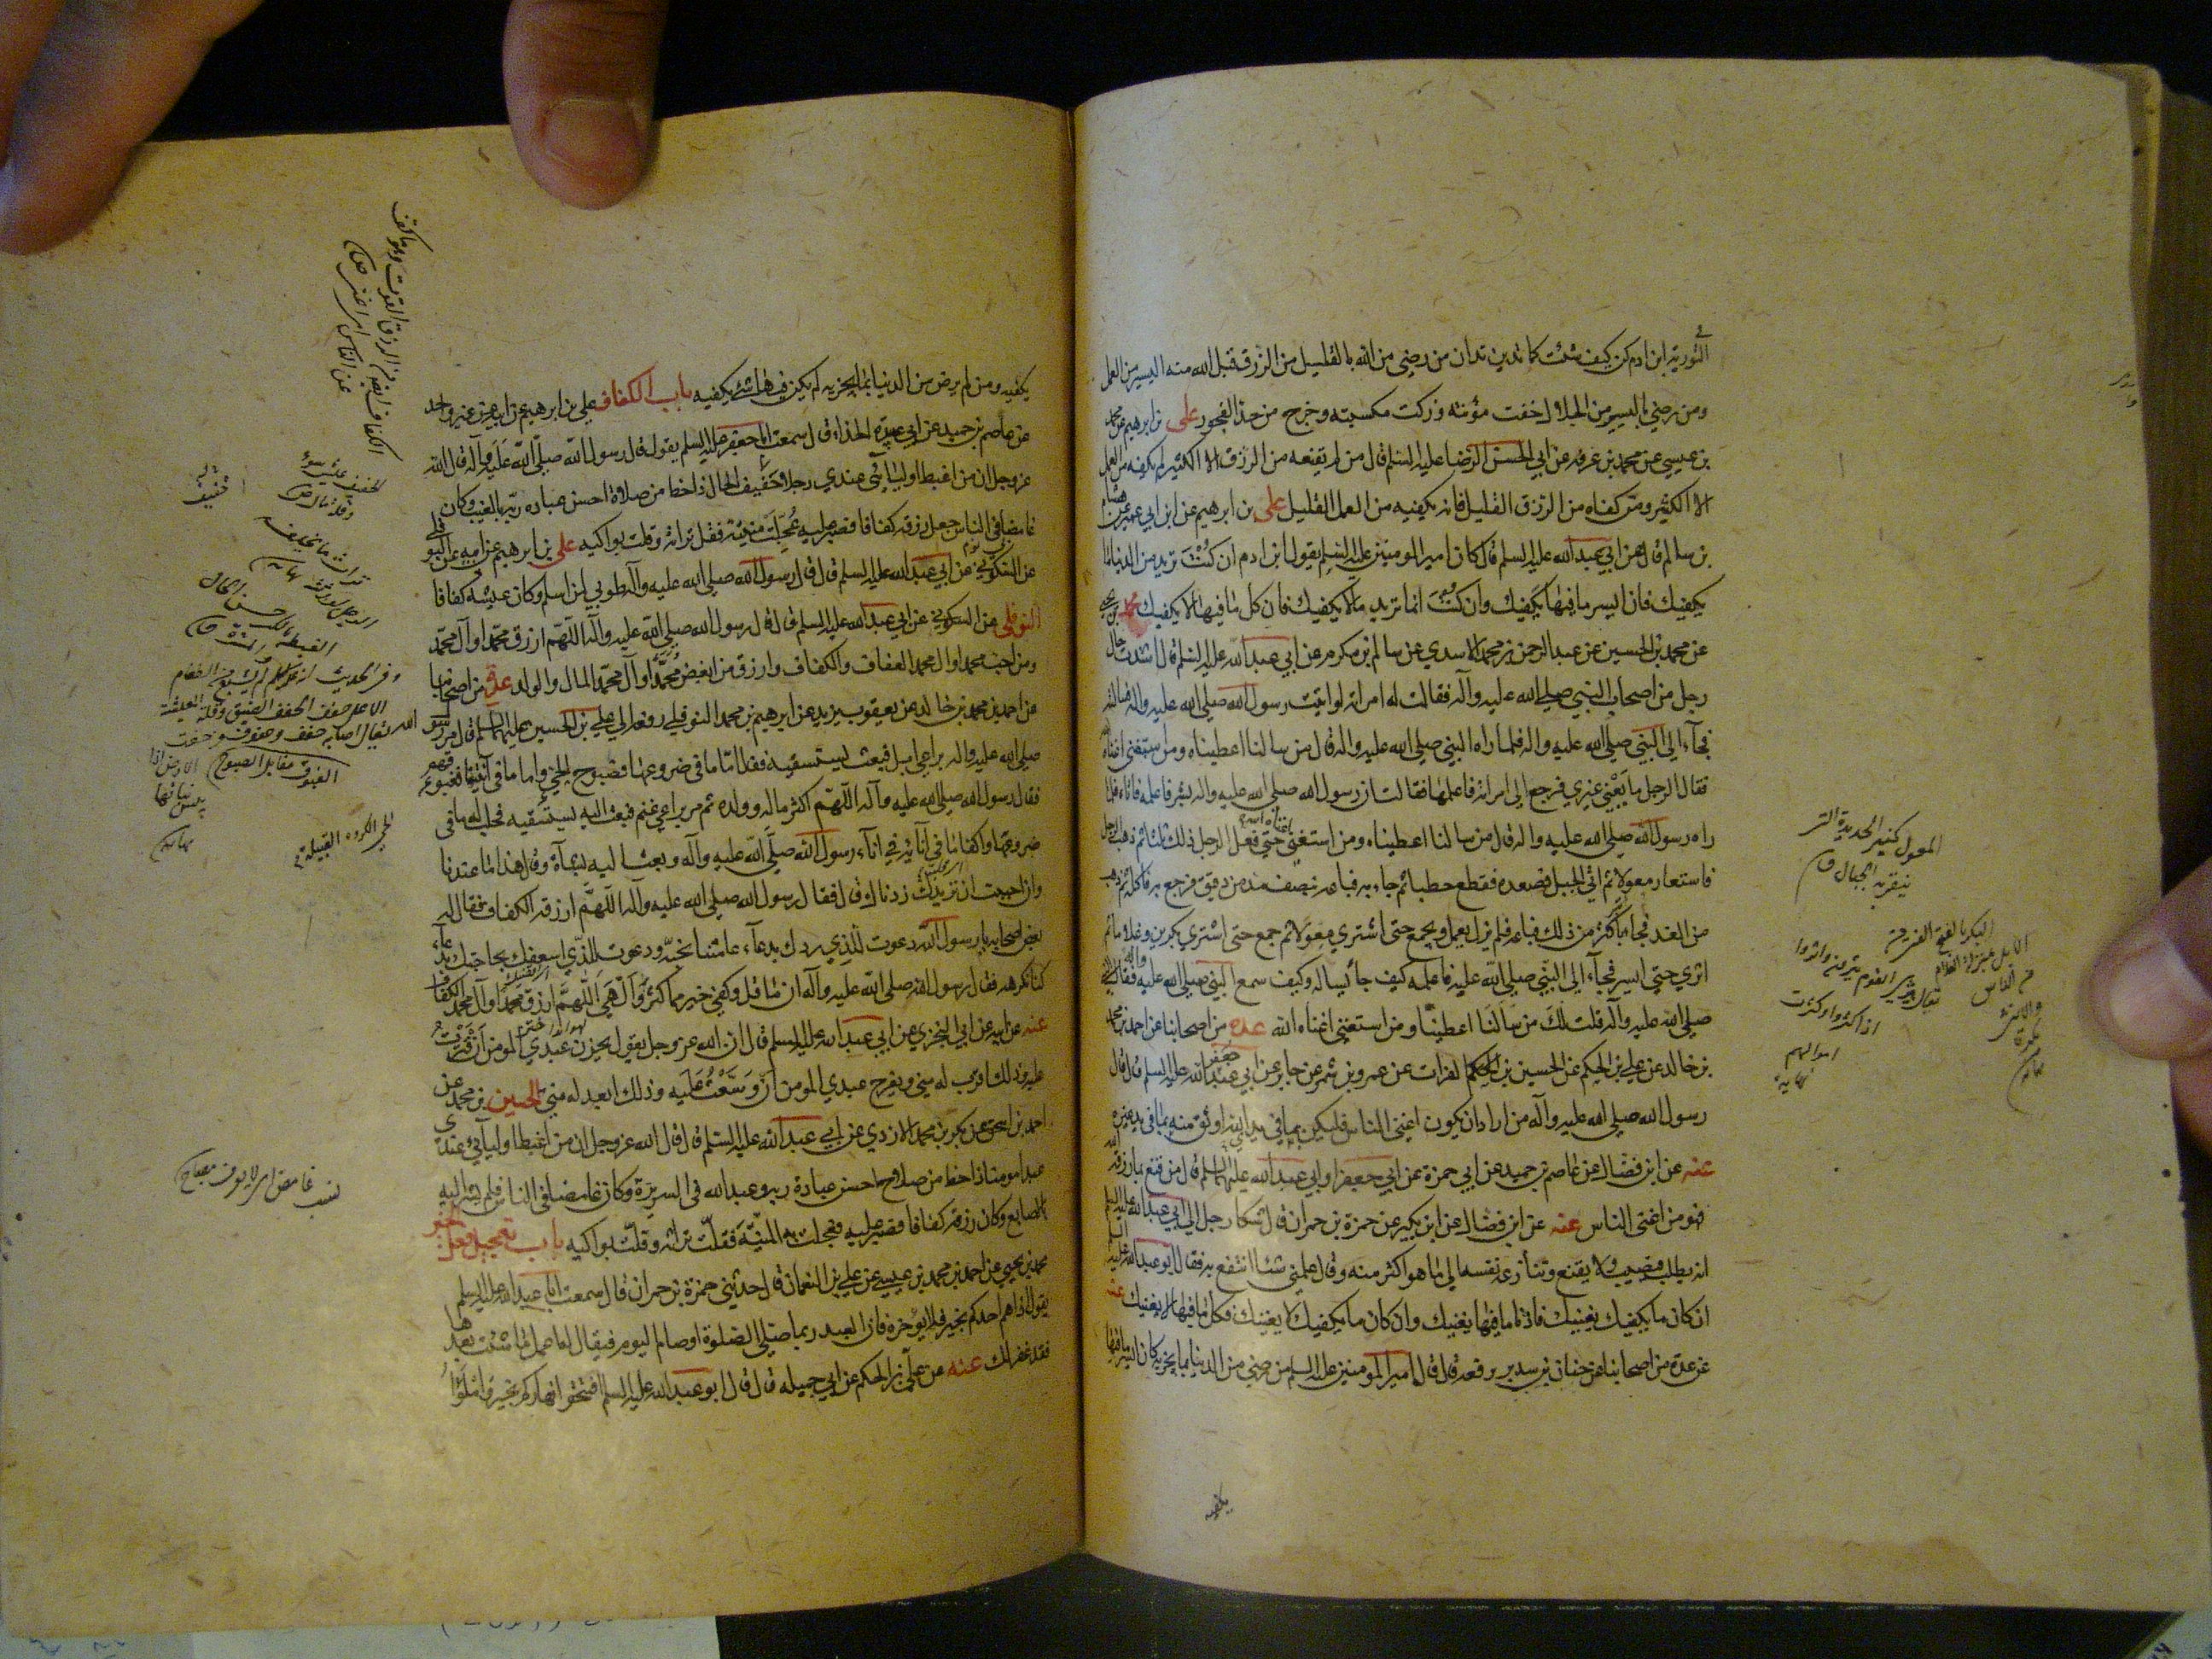 في التورية ابن ادم كن كيف شئت كما تدين تدان من رضي من الله بالقليل من الرزق قبل الله منه اليسير من العمل
ومن رضي باليسير من الحلال خفت مؤنته وزكت مكسبته وخرج من حد الفجور علي بن ابرهيم عن محمد
بن عيسى عن محمد بن عرفه عن ابي الحسن الرضا عليه السلم قال من لم يقنعه من الرزق الا الكثير لم يكفه من العمل
الا الكثير ومن كفاه من الرزق القليل فانه يكفيه من العمل القليل علي بن ابرهيم عن ابن ابي عمير عن هشام
بن سالم قال عن ابي عبد الله عليه السلم قال كان امير المومنين عليه السلم يقول ابن ادم ان كنت تريد من الدنيا ما
يكفيك فان ايسر ما فيها يكفيك وان كنت انما تريد مالا يكفيك فان كل ما فيها لا يكفيك محمد بن يحيى
عن محمد بن الحسين عن عبد الرحمن بن محمد الاسدي عن سالم بن مكرم عن ابي عبد الله عليه السلم قال اشتدت حال
رجل من اصحاب النبي صلى الله عليه وآله فقالت له امراته لو اتيت رسول الله صلى الله عليه واله فسالته
فجآء الى النبي صلى الله عليه واله فلما راه النبي صلى الله عليه واله قال من سالنا اعطيناه ومن استغنى اغناه الله
فقال الرجل ما يعني غيري فرجع الى امراته فاعلمها فقالت ان رسول الله صلى الله عليه واله بشر فاعلمه فاتاه فلما
راه رسول الله صلى الله عليه واله قال من سالنا اعطيناه ومن استغنى اغناه الله حتى فعل الرجل ذلك ثلثا ثم ذهب الرجل
فاستعار معولا ثم اتى الجبل فصعده فقطع حطبا ثم جاء به فباعه بنصف مد من دقيق فرجع به فاكله ثم ذهب
من الغد فجا باكثر من ذلك فباعه فلم يزل يعمل ويجمع حتى اشترى معولا ثم جمع حتى اشترى بكرين وغلاما ثم
اثرى حتى ايسر فجآء الى النبي صلى الله عليه واله فاعلمه كيف جا يساله وكيف سمع النبي صلى الله عليه فقال النبي
صلى الله عليه وآله قلت لك من سالنا اعطيناه ومن استغنى اغناه الله عدة من اصحابنا عن احمد بن محمد
بن خالد عن علي بن الحكم عن الحسين بن الفرات عن عمرو بن شمر عن جابر عن ابي جعفر عليه السلم قال قال
رسول الله صلى الله عليه وآله من اراد ان يكون اغنى الناس فليكن بما في يد الله اوثق منه بما في يد غيره
عنه عن ابن فضال عن عاصم بن حميد عن ابي حمزة عن ابي جعفر او ابي عبد الله عليهما السلم قال من قنع بما رزقه الله
فهو من اغنى الناس عنه عن ابن فضال عن ابن بكير عن حمزة بن حمران قال شكا رجل الى ابي عبد الله عليه السلم
انه يطلب فيصيب ولا يقنع وتنازعه نفسه الى ما هو اكثر منه وقال علمني شيئا انتفع به فقال ابو عبد الله عليه السلم
ان كان ما يكفيك يغنيك فادنا ما فيها يغنيك وان كان ما يكفيك لا يغنيك فكل ما فيها لا يغنيك عنه
عن عدة من اصحابنا عن حنان بن سدير رفعه قال قال امير المومنين عليه السلم من رضي من الدنيا بما يجزيه كان ايسر ما فيها
يكفيه
المعول كمنبر الحديدة التي
ينقر بها الجبال ق
البكر بالفتح الفتى من
الابل بمنزلة الغلام
من الناس
والانثى
بكرة
نهاية
يقال اثرى القوم يثرون اثروا
اذا كثروا وكثرت
اموالهم
نهاية
يكفيه ومن لم يرض من الدنيا بما يجزيه لم يكن فيها شئ يكفيه باب الكفاف علي بن ابرهيم عن ابيه عن غير واحد
عن عاصم بن حميد عن ابي عبيدة الحذاء قال سمعت ابا جعفر عليه السلم يقول قال رسول الله صلى الله عليه وآله قال الله
عز وجل ان من اغبط اوليائي عندي رجلا خفيف الحال ذا حظ من صلاة احسن عباده ربه بالغيب وكان
غامضا في الناس جعل رزقه كفافا فصبر عليه عجلت منيته فقل تراثه وقلت بواكيه علي بن ابرهيم عن ابيه عن النوفلي
عن السكوني عن ابي عبد الله عليه السلم قال قال رسول الله صلى الله عليه وآله طوبى لمن اسلم وكان عيشه كفافا
النوفلي عن السكوني عن ابي عبد الله عليه السلم قال قال رسول الله صلى الله عليه وآله اللهم ارزق محمدا وآل محمد
ومن احب محمدا وآل محمد العفاف والكفاف وارزق من ابغض محمدا وآل محمد المال والولد عدة من اصحابنا
عن احمد بن محمد بن خالد عن يعقوب بن يزيد عن ابرهيم بن محمد النوفلي رفعه الى علي بن الحسين عليهما السلم قال مر رسول الله
صلى الله عليه واله براعي ابل فبعث يستسقيه فقال اما ما في ضروعها فصبوح الحي واما ما في آنيتنا فغبوقهم
فقال رسول الله صلى الله عليه وآله اللهم اكثر ماله وولده ثم مر براعي غنم فبعث اليه يستسقيه فحلب له ما في
ضروعها واكفا ما في انائه في اناء رسول الله صلى الله عليه وآله وبعث اليه بشاة وقال هذا ما عندنا
وان احببت ان نزيدك زدناك قال فقال رسول الله صلى الله عليه وآله اللهم ارزقه الكفاف فقال له
بعض اصحابه يا رسول الله دعوت للذي ردك بدعآء عامتنا نحبه ودعوت للذي اسعفك بحاجتك بدعآء
كلنا نكرهه فقال رسول الله صلى الله عليه وآله ان ما قل وكفى خير مما كثر والهى اللهم ارزق محمدا وآل محمد الكفاف
عنه عن ابيه عن ابي البختري عن ابي عبد الله عليه السلم قال ان الله عز وجل يقول يحزن عبدي المومن ان قترت
عليه وذلك اقرب له مني ويفرح عبدي المومن ان وسعت عليه وذلك ابعد له مني الحسين بن محمد عن
احمد بن اسحق عن بكر بن محمد الازدي عن ابي عبد الله عليه السلم قال قال الله عز وجل ان من اغبط اوليائي عندي
عبدا مومنا ذا حظ من صلاح احسن عبادة ربه وعبد الله في السريرة وكان غامضا في الناس فلم يشر اليه
بالاصابع وكان رزقه كفافا فصبر عليه فعجلت به المنية فقل تراثه وقلت بواكيه باب تعجيل فعل الخير
محمد بن يحيى عن احمد بن محمد بن عيسى عن علي بن النعمان قال حدثني حمزة بن حمران قال سمعت ابا عبد الله عليه السلم
يقول اذا هم احدكم بخير فلا يؤخره فان العبد ربما صلى الصلوة او صام اليوم فيقال له اعمل ما شئت بعدها
فقد غفر لك عنه عن علي بن الحكم عن ابي جميله قال قال ابو عبد الله عليه السلم افتحوا نهاركم بخير واملوا
الكفاف من الرزق القوت وهو ما كف
عن الناس اى اغنى ص
الحفف عيش سوء
وقلة مال ص
خفيف
تراث ما يخلفه
الرجل لورثته نهاية
الغبطة بالكسر حسن الحال
والمسرة ق
وفي الحديث انه عليه السلم لم يشبع من طعام
الا على حفف الحفف الضيق وقلة المعيشة
يقال اصابه حفف وحفوف وحفت
الارض اذا
يبس نباتها
نهاية
الغبوق مقابل الصبوح
الحي القبيلة
نسب غامض اى لا يعرف مصباح